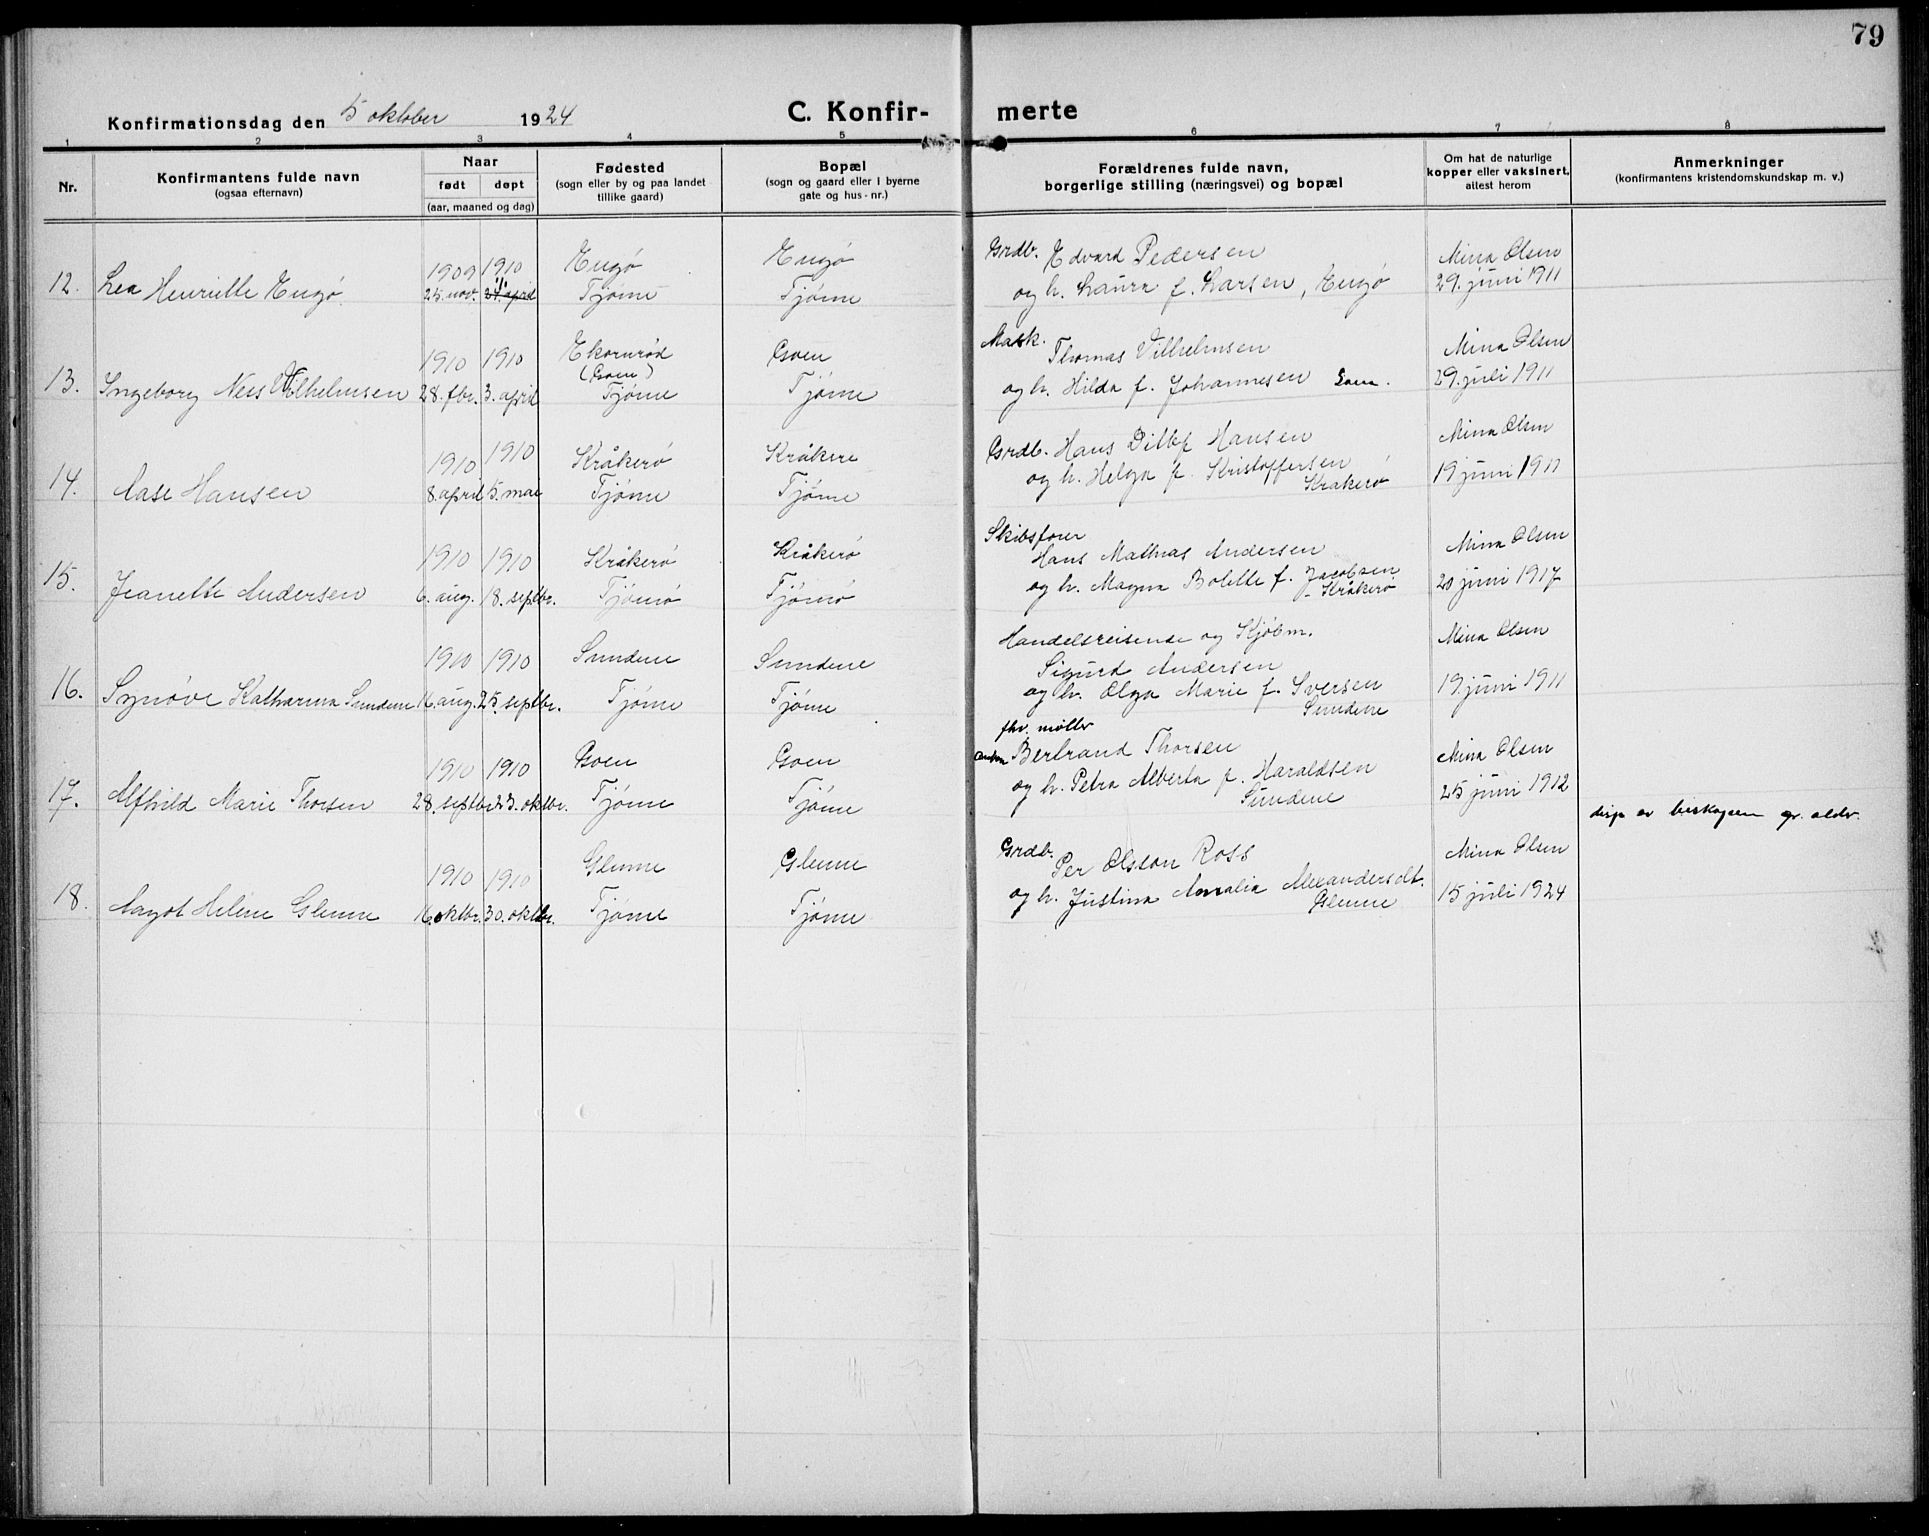 79
Konfirmationsdag den 5 oktober 1924
C. Konfir-
merte
1 2 3 4 5 6 7 8
Nr.
Konfirmantens fulde navn
(ogsaa efternavn)
Naar
født døpt
(aar, maaned og dag)
Fødested
(sogn eller by og paa landet
tillike gaard)
Bopæl
(sogn og gaard eller i byerne
gate og hus-nr.)
Forældrenes fulde navn,
borgerlige stilling (næringsvei) og bopæl
Om hat de naturlige
kopper eller vaksinert,
attest herom
Anmerkninger
(konfirmantens kristendomskundskap m. v.)
1909 1910 Engø Engø Grdb. Edvard Pedersen Mina Olsen
12. Lea Henriette Engø 25. nov. april Tjøme Tjøme og h. Laura f. Larsen, Engø 29. juni 1911
1910 1910 Ekornrød Goen Mask. Thomas Vilhelmsen Mina Olsen
(Goen)
13. Ingeborg Vilhelmsen 28. fbr. 3. april Tjøme Tjøme og h. Hilda f. Johannesen Goen. 29. juli 1911
1910 1910 Kråkerø Kråkere Grdb. Hans Ditlef Hansen Mina Olsen
14. Aase Hansen 8. april 5. mai Tjøme Tjøme og h. Helga f. Kristoffersen 19 juni 1911
Kråkerø
1910 1910 Kråkerø Kråkerø Skibsfører
Hans Mathias Andersen Mina Olsen
15. Jeanette Andersen 6. aug. 18. septbr. Tjømø Tjømø og h. Magna Bolette f. Jacobsen 20 juni 1917
Kråkerø
1910 1910 Sundene Sundene Handelsreisende og Kjøbm. Mina Olsen
Sigurd Andersen
16. Synøve Katharina Sundene 16. aug. 25. septbr. Tjøme Tjøme og h. Olga Marie f. Iversen 19 juni 1911
Sundene
fhv. møller
1910 1910 Goen Goen Anton Bertrand Thorsen Mina Olsen
17. Alfhild Marie Thorsen 28. septbr. 23. oktbr. Tjøme Tjøme og h. Petra Alberta f. Haraldsen 25 juni 1912
Sundene
disp av biskopen gr. alder.
1910 1910 Glenne Glenne Grdb. Per Olsson Ross Mina Olsen
18. Aagot Helene Glenne 16. oktbr. 30. oktbr. Tjøme Tjøme og h. Justina Amalia Alexandersdt. 15 juli 1924
Glenne